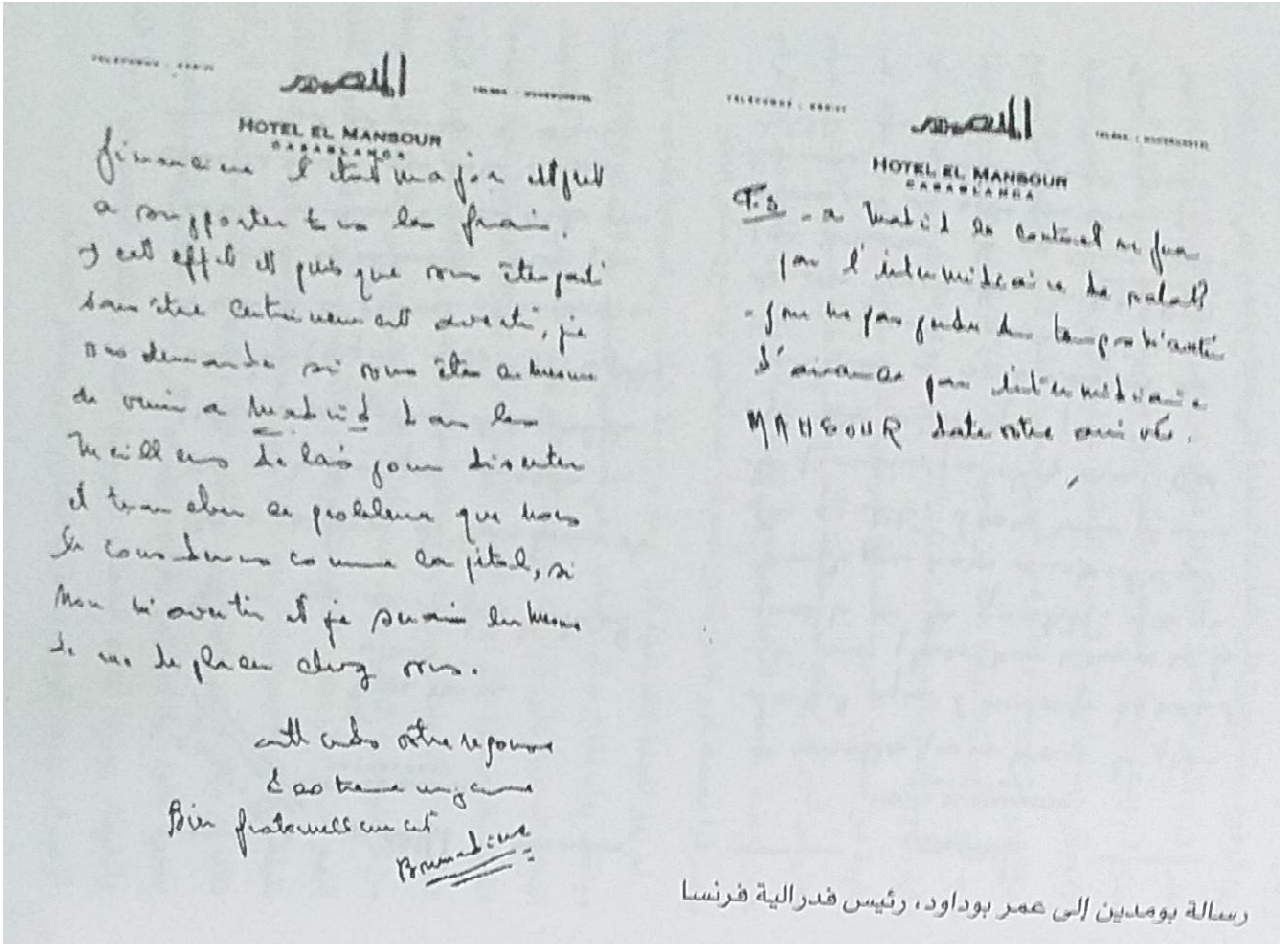 المنصور
HOTEL EL MANSOUR
CASABLANCA
financière l'état major est prêt
a supporter tous les frais.
A cet effet et puis que vous êtes parti
sans être entièrement averti, je
vous demande si vous êtes en mesure
de venir a Madrid dans les
meilleurs délais pour discuter
et trancher ce problème que nous
considérons comme capital, si
non m'avertir et je serais en mesure
de me déplacer chez vous.
attends votre réponse
d'extrême urgence
Bien fraternellement
Boumediene
المنصور
HOTEL EL MANSOUR
CASABLANCA
P.S - a Madrid le contact se fera
par l'intermédiaire de
- pour ne pas perdre du temps m'avertir
d'avance par l'intermédiaire
MANSOUR date votre arrivée.
رسالة بومدين إلى عمر بوداود، رئيس فدرالية فرنسا